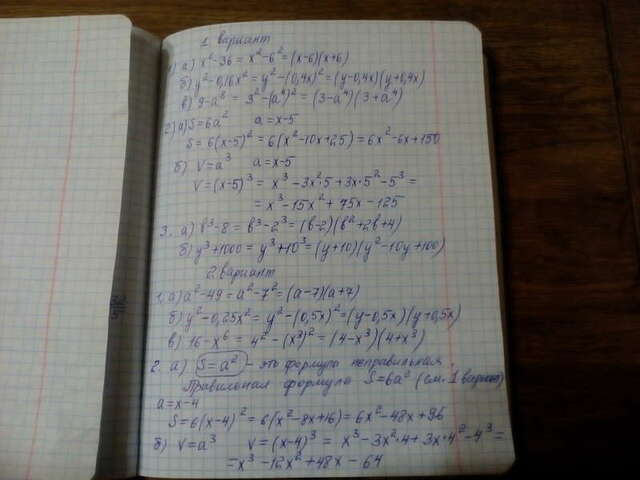 1 вариант
1) а) x²-36 = x²-6² = (x-6)(x+6)
б) y²-0,16x² = y²-(0,4x)² = (y-0,4x)(y+0,4x)
в) 9-a⁸ = 3²-(a⁴)² = (3-a⁴)(3+a⁴)
2) а) S=6a² a=x-5
S=6(x-5)² = 6(x²-10x+25) = 6x²-6x+150
б) V=a³ a=x-5
V=(x-5)³ = x³-3x²·5+3x·5²-5³ =
= x³-15x²+75x-125
3. а) b³-8 = b³-2³ = (b-2)(b²+2b+4)
б) y³+1000 = y³+10³ = (y+10)(y²-10y+100)
2 вариант
1. а) a²-49 = a²-7² = (a-7)(a+7)
б) y²-0,25x² = y²-(0,5x)² = (y-0,5x)(y+0,5x)
в) 16-x⁶ = 4²-(x³)² = (4-x³)(4+x³)
2. а) S=a² - это формула неправильная.
Правильная формула S=6a² (см. 1 вариант)
a=x-4
S=6(x-4)² = 6(x²-8x+16) = 6x²-48x+96
б) V=a³ V=(x-4)³ = x³-3x²·4+3x·4²-4³ =
= x³-12x²+48x-64